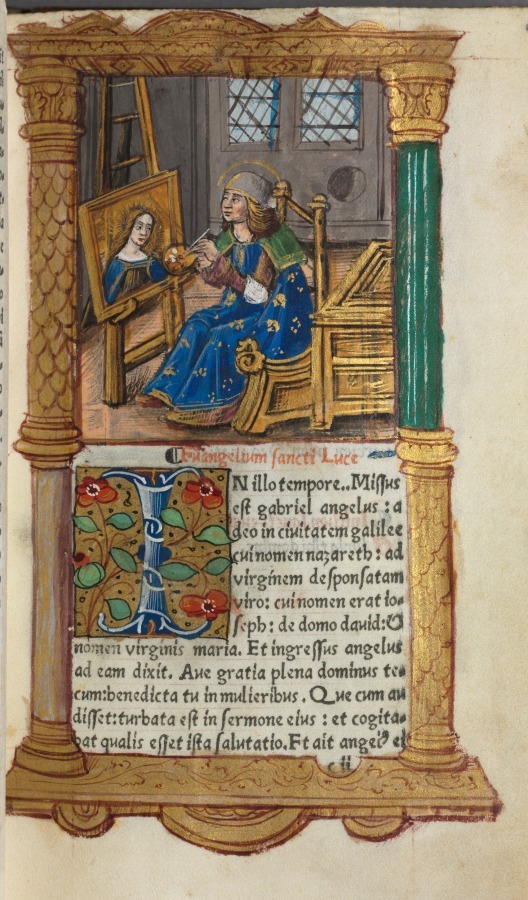 Euangelium sancti Luce
IN illo tempore.. Missus
est gabriel angelus : a
deo in ciuitatem galilee
cui nomen nazareth : ad
virginem desponsatam
viro : cui nomen erat io
seph : de domo dauid: &
nomen virginis maria. Et ingressus angelus
ad eam dixit. Aue gratia plena dominus te
cum: benedicta tu in mulieribus. Que cum au
disset: turbata est in sermone eius : et cogita
bat qualis esset ista salutatio. Et ait angelꝰ ei